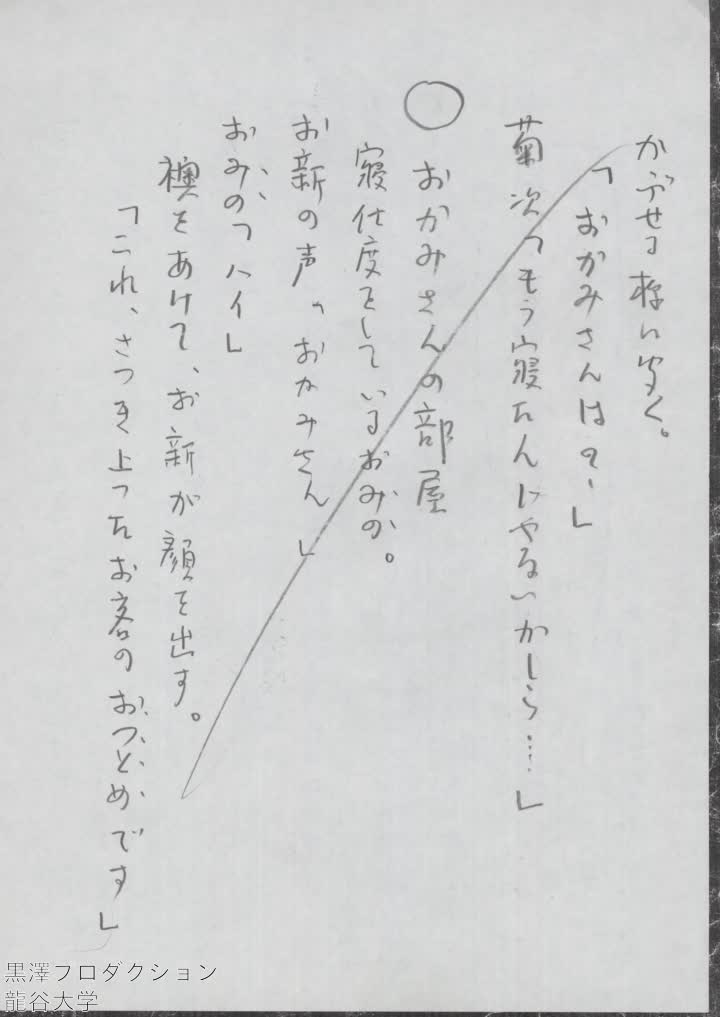 かぶせる様に安く。
「おかみさんは？」
菊次「もう寝たんじゃないかしら…」
○ おかみさんの部屋
寝仕度をしているおみの。
お新の声「おかみさん」
おみの「ハイ」
襖をあけて、お新が顔を出す。
「これ、さつき上ったお客のおつとめです」
黒澤プロダクション
龍谷大学